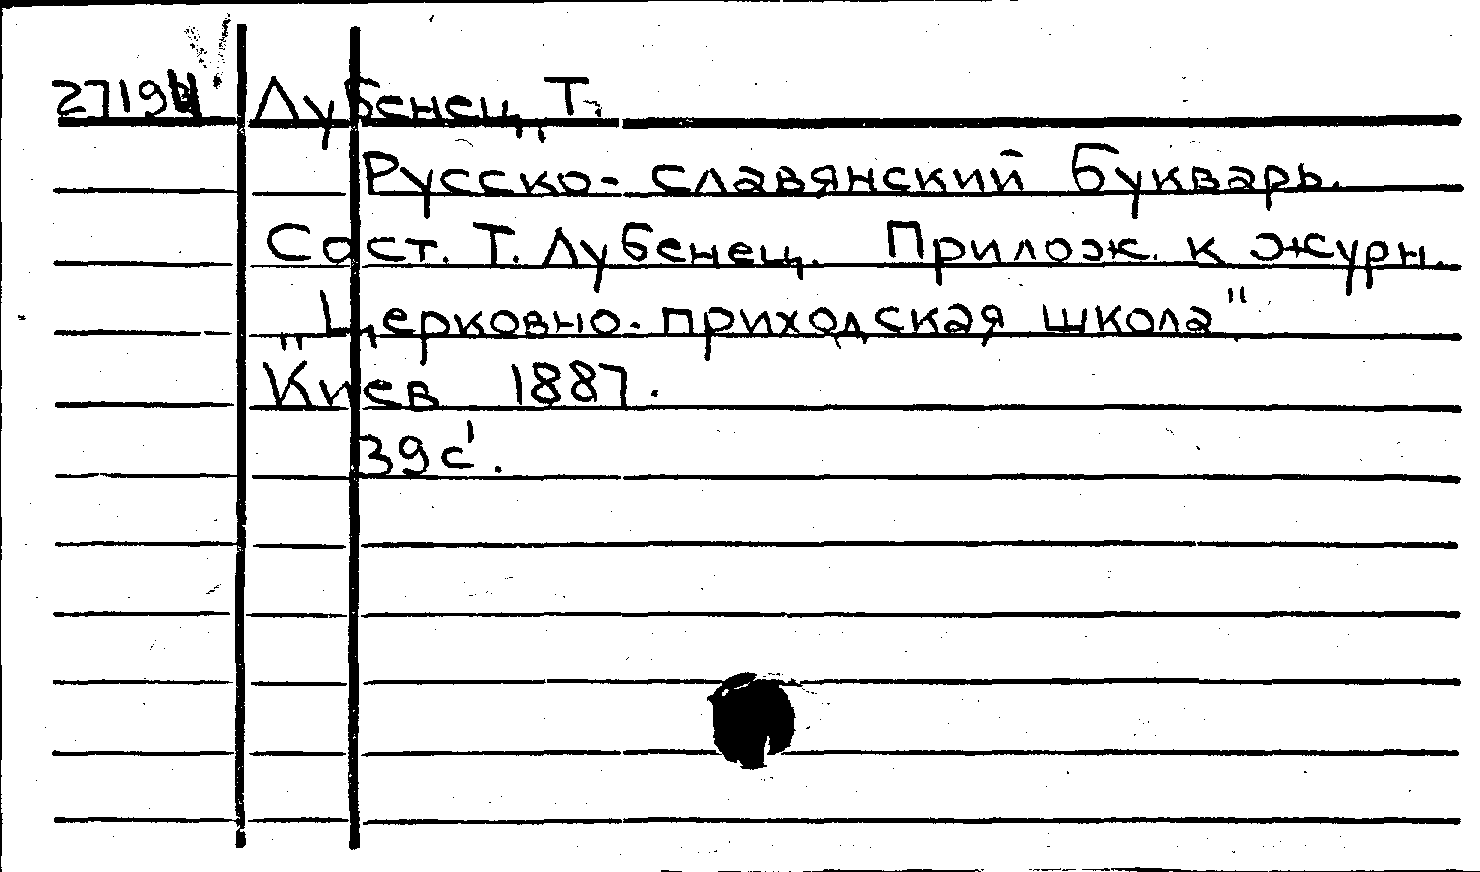 27194 Лубенец, Т.
Русско-славянский Букварь.
Сост. Т. Лубенец. Прилож. к журн.
„Церковно-приходская школа"
Киев 1887.
39 с.